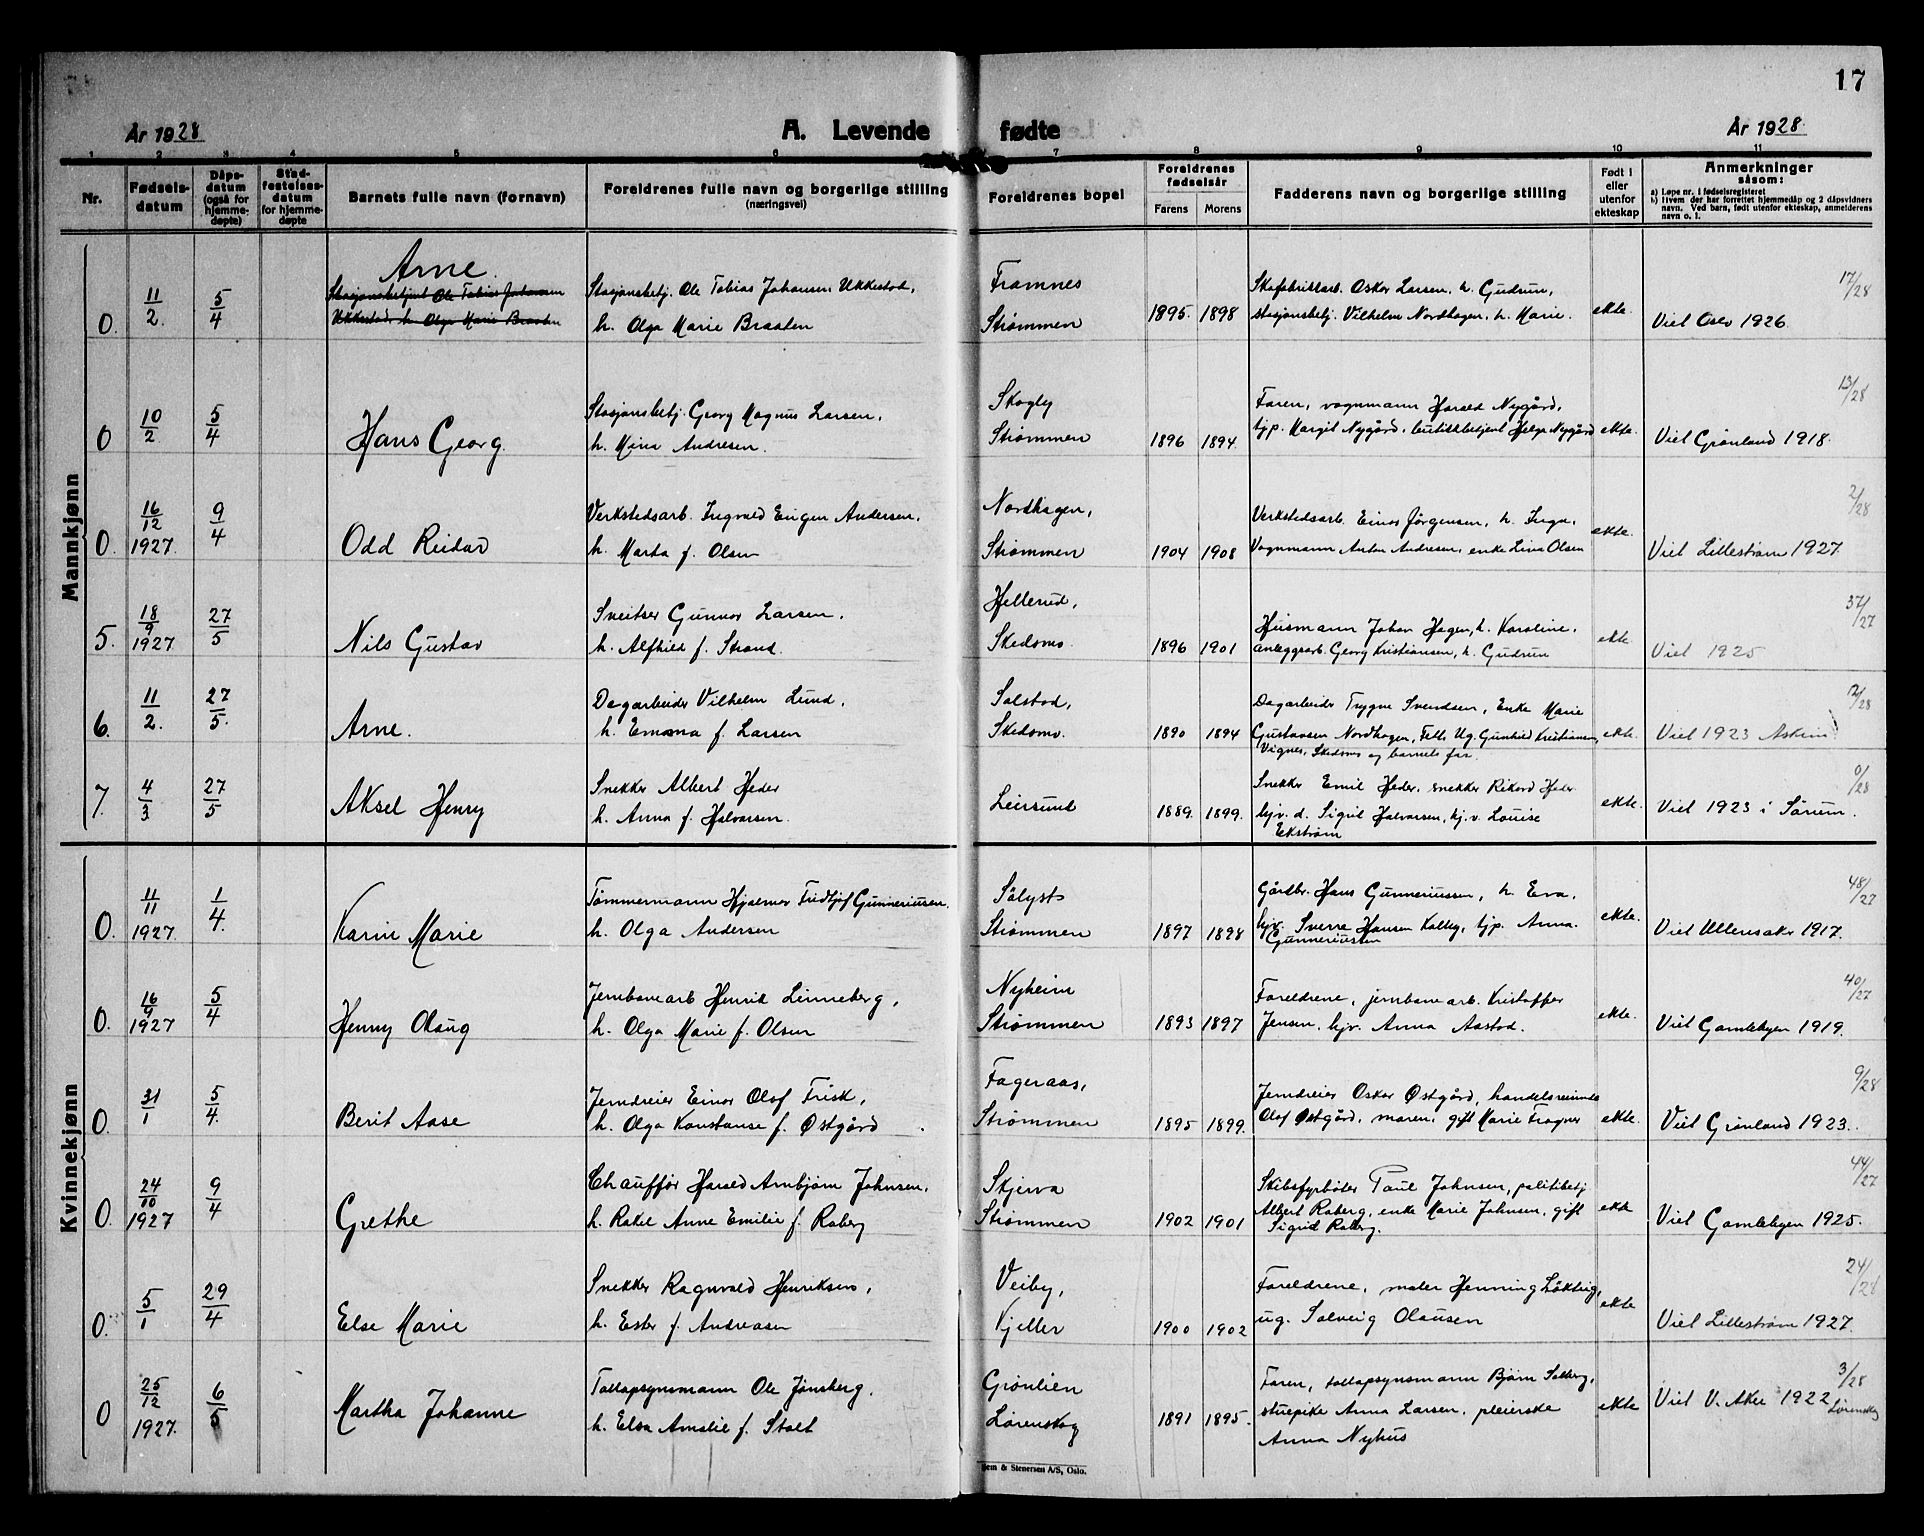 17
År 1928
A. Levende fødte
År 1928
1 2 3 4 5 6 7 8 9 10 11
Nr.
Fødsels-
datum
Dåps-
datum
(også for
hjemme-
døpte)
Stad-
festelses-
datum
for hjemme-
døpte
Barnets fulle navn (fornavn)
Foreldrenes fulle navn og borgerlige stilling
(næringsvei)
Foreldrenes bopel
Foreldrenes
fødselsår
Farens Morens
Fadderens navn og borgerlige stilling
Født i
eller
utenfor
ekteskap
Anmerkninger
såsom:
a) Løpe nr. i fødselsregisteret
b) Hvem der har forrettet hjemmedåp og 2 dåpsvidners
navn. Ved barn, født utenfor ekteskap, anmelderens
navn o. l.
Mannkjønn
0. 11/2. 5/4
Arne.
Stasjonsbetjent Ole Tobias Johansen
Ukkestad, h. Olga Marie Braaten
Stasjonsbetj. Ole Tobias Johansen Ukkestad,
h. Olga Marie Braaten
Framnes
Strømmen
1895. 1898
Skofabrikkarb. Oskar Larsen, h. Gudrun,
stasjonsbetj. Vilhelm Nordhagen, h. Marie.
ekte.
17/28
Viet Oslo 1926.
0 10/2 5/4
Hans Georg.
Stasjonsbetj. Georg Magnus Larsen,
h. Mina Andresen.
Skogly
Strømmen
1896 1894.
Faren, vognmann Harald Nygård,
tjp. Margit Nygård, butikkbetjent Helge Nygård
ekte.
13/28
Viet Grønland 1918.
0. 16/12 1927. 9/4
Odd Reidar
Verkstedsarb. Ingvald Eugen Andersen,
h. Marta f. Olsen
Nordhagen,
Strømmen
1904 1908
Verkstedsarb. Einar Jörgensen, h. Inga,
Vognmann Anton Andresen, enke Lina Olsen
ekte.
2/28
Viet Lillestrøm 1927.
5. 18/9 1927 27/5
Nils Gustav
Sveitser Gunnar Larsen,
h. Alfhild f. Strand.
Hellerud,
Skedsmo.
1896 1901
Husmann Johan Hagen, h. Karoline,
anleggsarb. Georg Kristiansen, h. Gudrun
ekte
37/27
Viet 1925
6. 11/2. 27/5.
Arne.
Dagarbeider Vilhelm Lund,
h. Emma f. Larsen
Solstad,
Skedsmo.
1890 1894
Dagarbeider Trygve Svendsen, Enke Marie
Gustavsen Nordhagen, Ug. Gunhild Kristiansen,
Vignes, Skedsmo og barnets far.
ekte.
2/28
Viet 1923 Askim
7. 4/3. 27/5
Aksel Henry
Snekker Albert Heder
h. Anna f. Halvorsen.
Leirsund
1889. 1899.
Snekker Emil Heder, snekker Rikard Heder
hjv. d. Sigrid Halvorsen, hj. v. Louise
Ekstrøm
ekte.
0/28
Viet 1923 i Sørum.
Kvinnekjønn
0. 11/11 1927. 1/4.
Karin Marie
Tømmermann Hjalmar Fridtjof Gunneriusen.
h. Olga Andersen
Sålyst
Strømmen
1897 1898
Gårdbr. Hans Gunneriussen, h. Eva,
hjv. Sverre Hansen Kalberg, tjp. Anna.
Gunneriusen
ekte.
48/27
Viet Ullensaker 1917.
0. 16/9 1927 5/4
Henny Olaug
Jernbanearb Henrik Linneberg,
h. Olga Marie f. Olsen
Nyheim
Strømmen
1893 1897
Foreldrene, jernbanearb. Kristoffer
Jensen, hjv. Anna Aastad.
ekte.
40/27
Viet Gamlebyen 1919.
0. 31/1 5/4.
Berit Aase
Jerndreier Einar Olaf Frisk,
h. Olga Konstanse f. Østgård.
Fageraas,
Strømmen
1895 1899.
Jerndreier Oskar Østgård, handelsreisende
Olaf Østgård, moren, gift Marie Fragner
ekte.
9/28
Viet Grønland 1923.
0. 24/10 1927 9/4
Grethe
Chauffør Harald Arnbjørn Johnsen,
h. Rakel Anne Emilie f. Raberg
Skjerva
Strømmen
1902 1901
Skibsfyrbøter Paul Johnsen, politibetj
Albert Raberg, enke Marie Johnsen, gift
Sigrid Raberg.
ekte
44/27
Viet Gamlebyen 1925.
0. 5/1 29/4
Else Marie
Snekker Ragnvald Henriksen,
h. Ester f. Andreasen
Veiby,
Kjeller
1900 1902
Foreldrene, maler Henning Løkteig,
ug. Solveig Olausen
ekte
24/28
Viet Lillestrøm 1927.
0 25/12 1927. 6/5
Martha Johanne
Tollopsynsmann Ole Jønsberg,
h. Elsa Amalie f. Stolt
Grønlien
Lørenskog
1891 1895.
Faren, tollopsynsmann Bjørn Solberg,
stuepike Anna Larsen, pleierske
Anna Nyhus
ekte
3/28
Viet V. Aker 1922 Lørenskog
Sem & Stenersen A/S, Oslo.